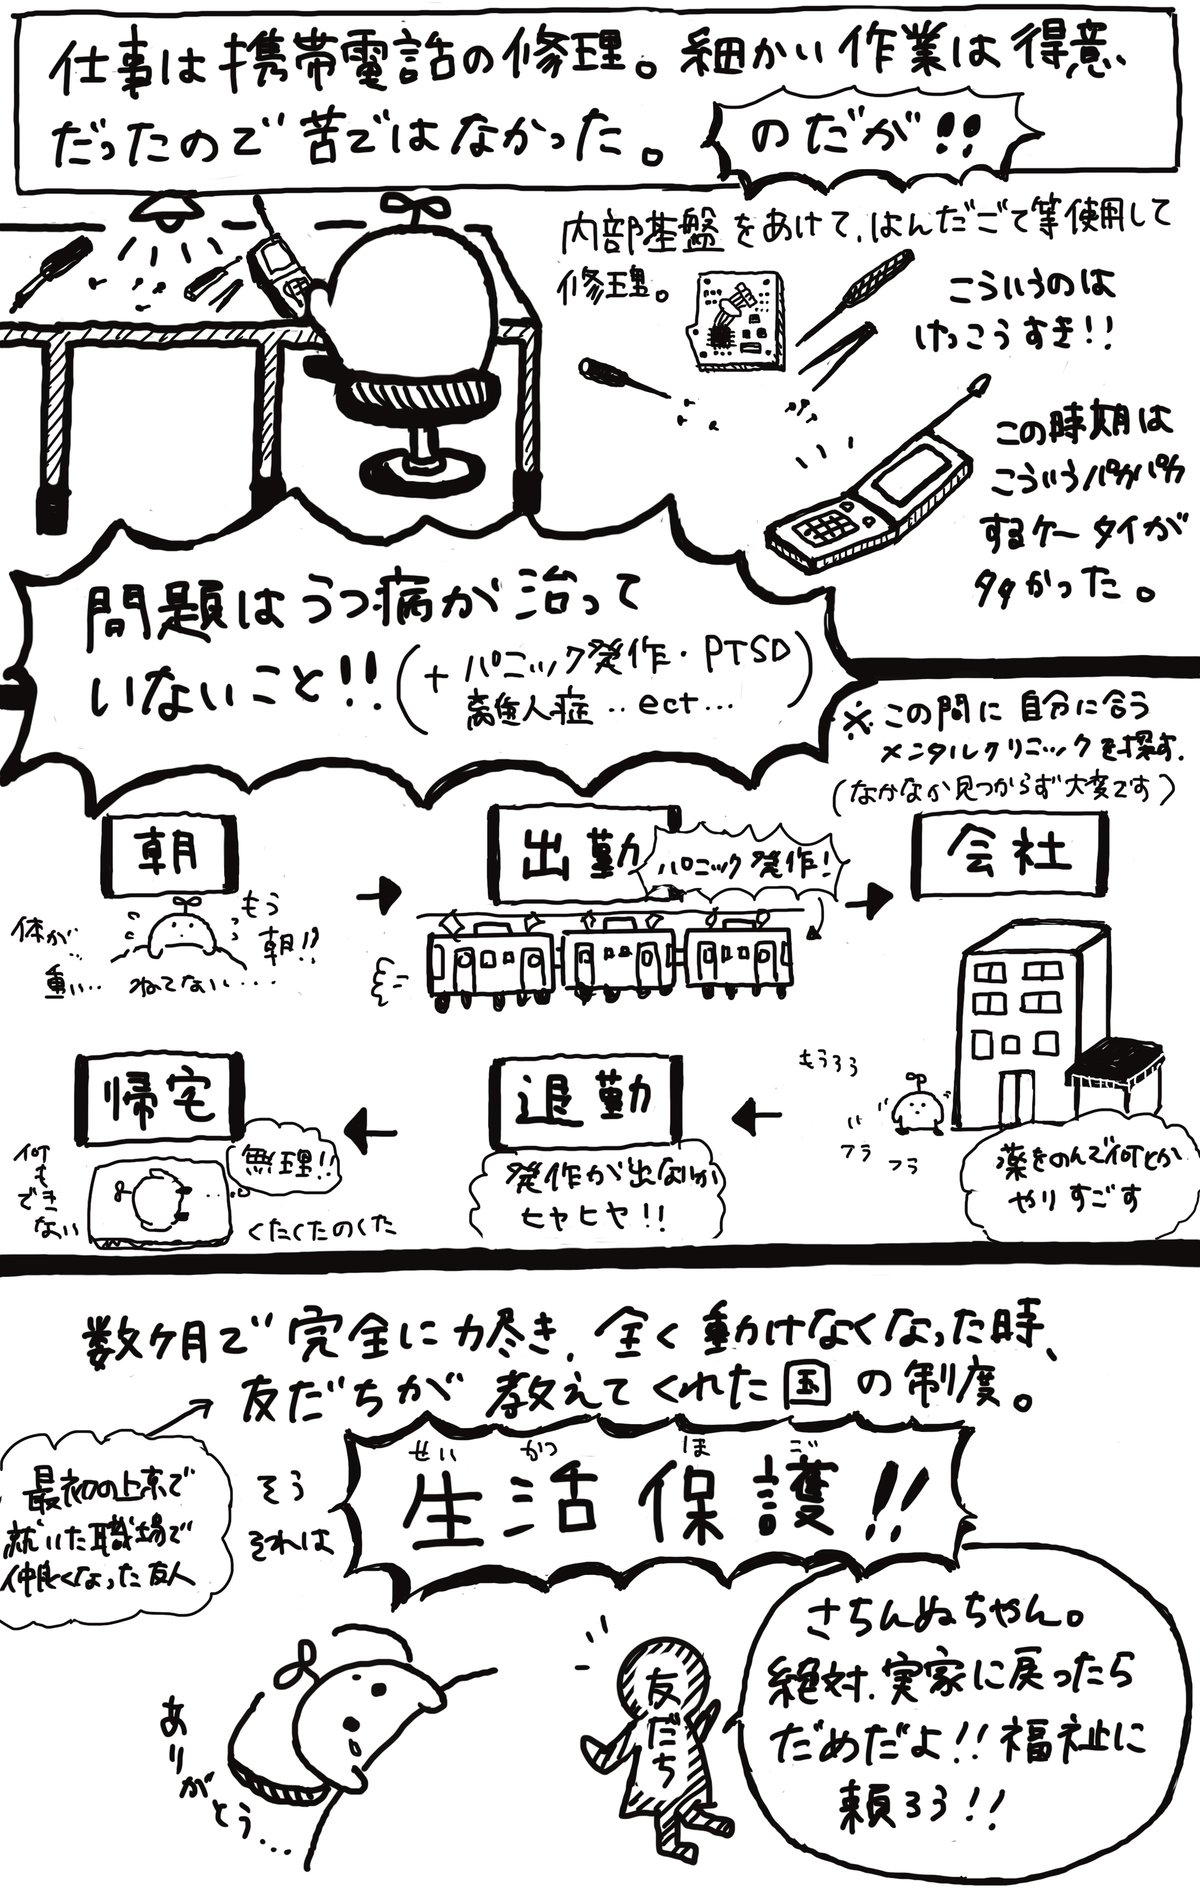 仕事は携帯電話の修理。細かい作業は得意
だったので苦ではなかった。
のだが!!
内部基盤をあけて、はんだごて等使用して
修理。
こういうのは
けっこうすき!!
この時期は
こういうパカパカ
するケータイが
多かった。
問題はうつ病が治って
いないこと!!
(+パニック発作・PTSD
離人症‥ect…)
※この間に自分に合う
メンタルクリニックを探す.
(なかなか見つからず大変です)
朝
もう
朝!!
体が
重い…
ねてない....
出勤
パニック発作!
会社
もうろう
フラ
フラ
薬をのんで何とか
やりすごす
退勤
発作が出ないか
ヒヤヒヤ!!
帰宅
無理!!
何も
でき
ない
くたくたのくた
数ヶ月で完全に力尽き、全く動けなくなった時、
友だちが教えてくれた国の制度。
最初の上京で
就いた職場で
仲良くなった友人
そう
それは
せいかつほご
生活保護!!
ありがとう...
友だち
さちんぬちゃん。
絶対、実家に戻ったら
だめだよ!!福祉に
頼ろう!!